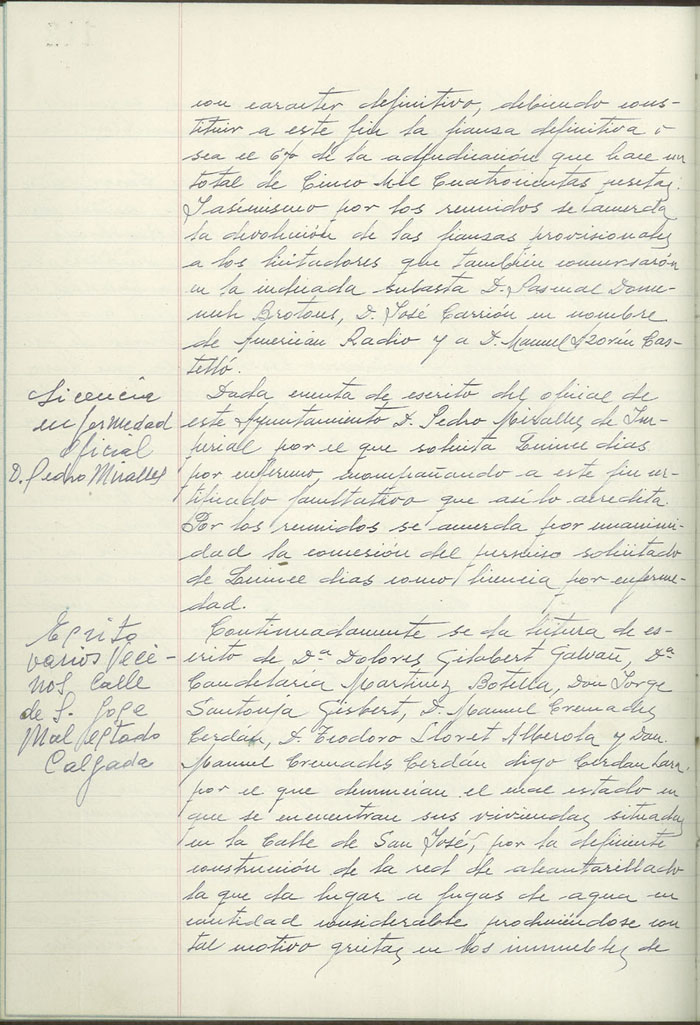 con caracter definitivo, debiendo cons-
tituir a este fin la fianza definitiva o
sea el 6% de la adjudicación que hace un
total de Cinco Mil Cuatrocientas pesetas.
Y asimismo por los reunidos se acuerda
la devolución de las fianzas provisionales
a los licitadores que también concursarón
en la indicada subasta D. Pascual Dome-
nech Brotons, D. José Carrión en nombre
de American Radio y a D. Manuel Azorín Cas-
telló.
Licencia
enfermedad
oficial
D. Pedro Miralles
Dada cuenta de escrito del oficial de
este Ayuntamiento D. Pedro Miralles de Im-
perial por el que solicita Quince dias
por enfermo, acompañando a este fin cer-
tificado facultativo que asi lo acredita.
Por los reunidos se acuerda por unanimi-
dad la concesión del permiso solicitado
de Quince dias como licencia por enferme-
dad.
Escrito
varios veci-
nos calle
de S. Jose
Mal estado
Calzada
Continuadamente se da lectura de es-
crito de Dª Dolores Gilabert Galvañ, Dª
Candelaria Martinez Botella, Don Jorge
Santonja Gisbert, D. Manuel Cremades
Cerdán, D. Teodoro Lloret Alberola y Don
Manuel Cremades Cerdán digo Cerdan Lara
por el que denuncian el mal estado en
que se encuentran sus viviendas situadas
en la Calle de San José, por la deficiente
construcción de la red de alcantarillado
la que da lugar a fugas de agua en
cantidad considerable produciéndose con
tal motivo grietas en los inmuebles de